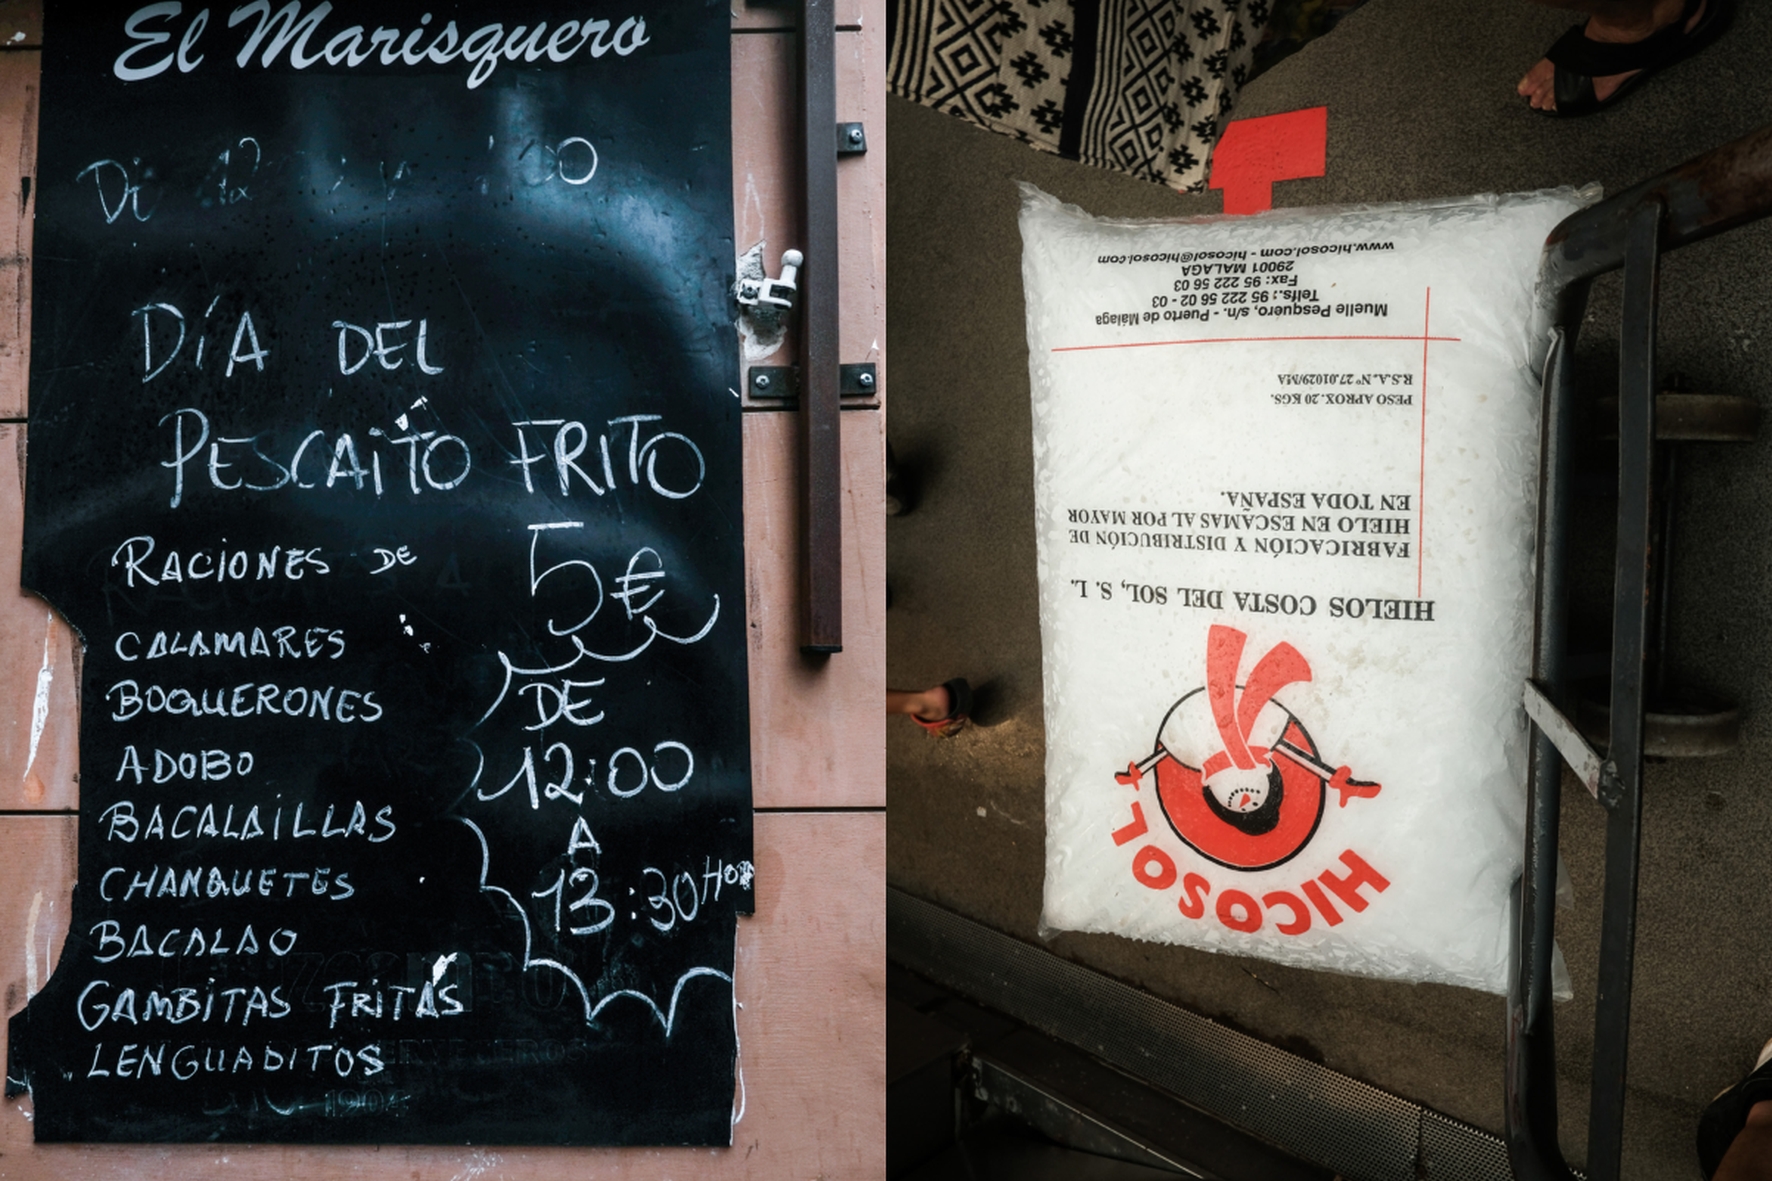 El Marisquero
DÍA DEL
PESCAÍTO FRITO
RACIONES DE
5€
CALAMARES
BOQUERONES
ADOBO
BACALAILLAS
CHANQUETES
BACALAO
GAMBITAS FRITAS
LENGUADITOS
DE
12:00
A
13:30
HICOSOL
HIELOS COSTA DEL SOL, S. L.
FABRICACIÓN Y DISTRIBUCIÓN DE
HIELO EN ESCAMAS AL POR MAYOR
EN TODA ESPAÑA.
PESO APROX. 20 KGS.
R.S.A. Nº 27.01029/MA
Muelle Pesquero, s/n. - Puerto de Málaga
Telfs.: 95 222 56 02 - 03
Fax: 95 222 56 03
29001 MALAGA
www.hicosol.com - hicosol@hicosol.com